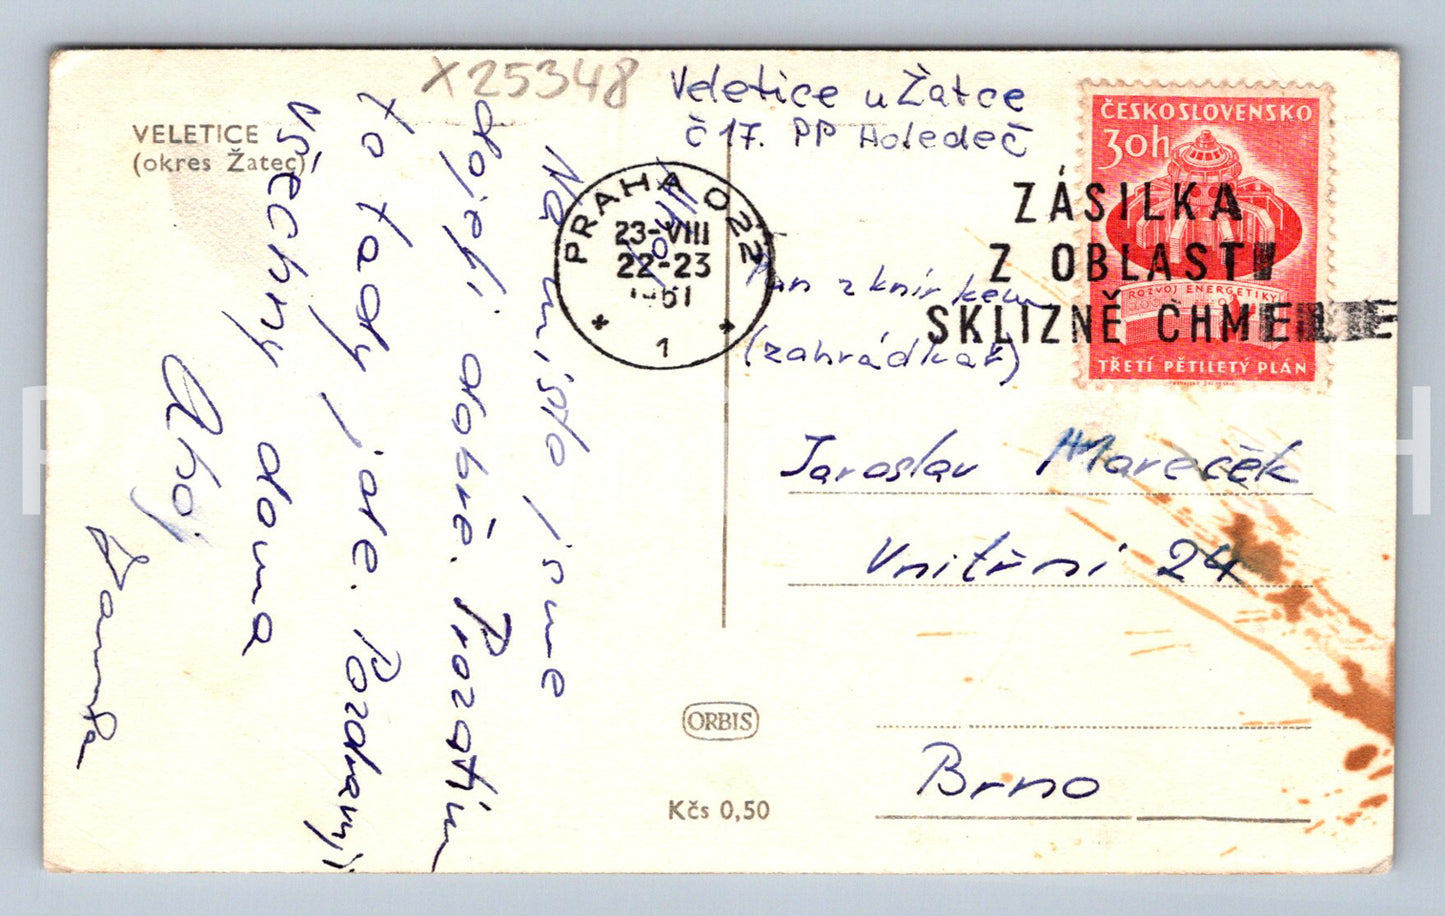 X25348
VELETICE
(okres Žatec)
Veletice u Žatce
č 17. PP Holedeč
Ahoj
Na místo jsme
dojeli dobře. Prozatím
to tady jde. Pozdravuji
všechny doma
Ahoj
PRAHA 022
23-VIII
22-23
1961
1
ČESKOSLOVENSKO
30h
ROZVOJ ENERGETIKY
TŘETÍ PĚTILETÝ PLÁN
ZÁSILKA
Z OBLASTI
SKLIZNĚ CHMELE
Pan z knírkem
(zahrádkář)
Jaroslav Mareček
Vnitřní 24
Brno
ORBIS
Kčs 0,50